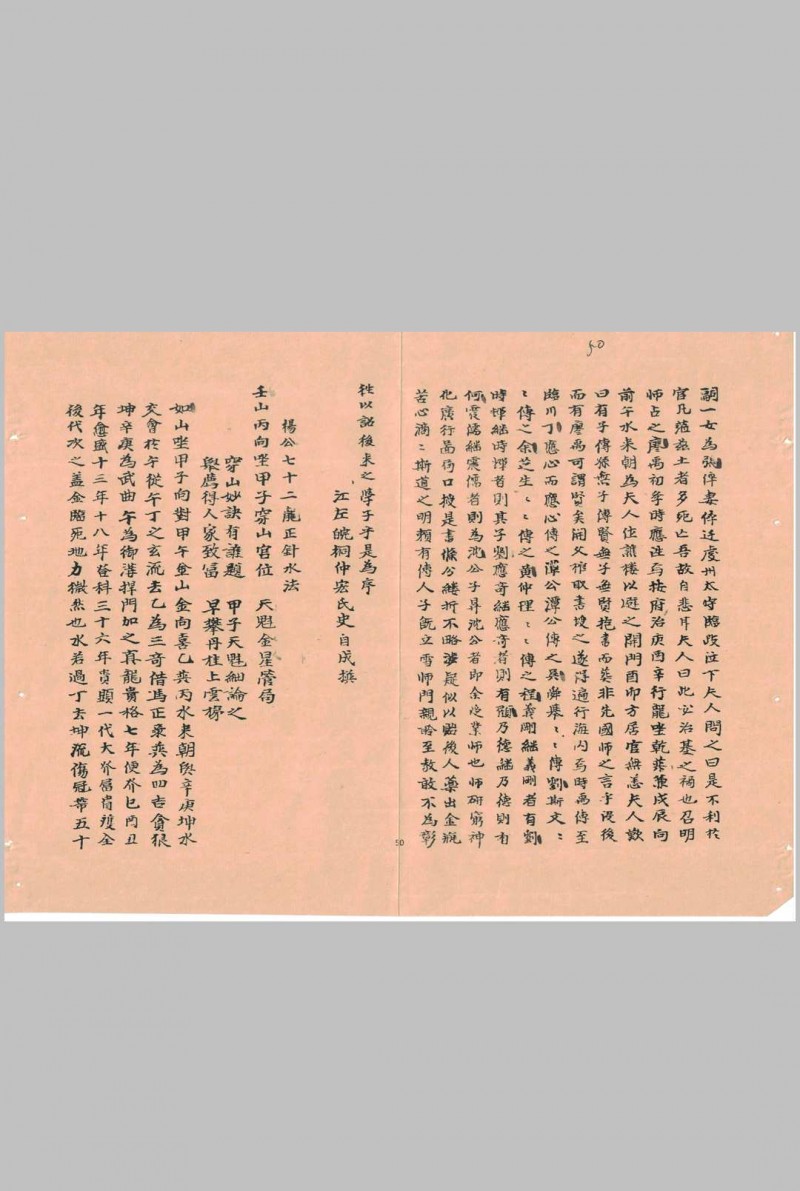 50
嗣一女為張倅妻倅迁虔州太守臨歧泣下夫人問之曰是不利於
官凡蒞茲土者多死亡吾故自悲耳夫人曰此必治基之禍也召明
師占之廖禹初年時應詔与按府治庚酉辛行龍坐乾葬兼戌辰向
前午水來朝為夫人住譙楼以避之開門酉卯方居官無恙夫人歎
曰有子傳孫無子傳賢無子無賢抱書而葬非先國師之言乎没後
而有廖禹可謂賢矣開父柩取書授之遂得遍行海内乌時禹傳至
臨川丁應心而應心傳之潭公潭公傳之吳舜舉：：傳劉斯文：
：傳之余芝生：：傳之黄仲理：：傳之程義剛繼義剛者有劉
時輝繼時輝者則其子劉應奇繼應奇者則有顧乃德繼乃德則有
何震儒繼震儒者則為沈公子昇沈公者即余受業師也师研窮神
化廣行篙舟口授是書條分縷折不略涉疑似以貽後人藥出金甁
苦心滴：斯道之明頼有傳人予旣立雪師門親啓至教敢不為彰
50
徃以詔後来之學子乎是為序
江左皖桐仲宏氏史自成撰
楊公七十二龐正針水法
壬山丙向坐甲子穿山官位　天魁金星管局
穿山妙訣有誰題　甲子天魁細論之
舉薦得人家致富　早攀丹桂上雲梯
如山坐甲子向對甲午金山金向喜乙巽丙水来朝與辛庚坤水
交會於午從午丁之玄流去乙為三奇借馮正乗巽為四吉貪狼
坤辛庚為武曲午為御港捍門加之真龍貴格七年便發巳酉丑
年愈盛十三年十八年登科三十六年貴顯一代大發富貴雙全
後代次之盖金臨死地力微然也水若過丁去坤流傷冠帯五十